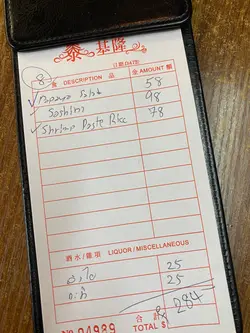 泰 基隆
日期(047B)
8
食 DESCRIPTION 品 金 AMOUNT 額
✓ Papaya Salad 58
Sashimi 98
✓ Shrimp Paste Rice 78
酒水/雜項 LIQUOR/MISCELLANEOUS
25
25
合計
TOTAL $ 284
No 04989